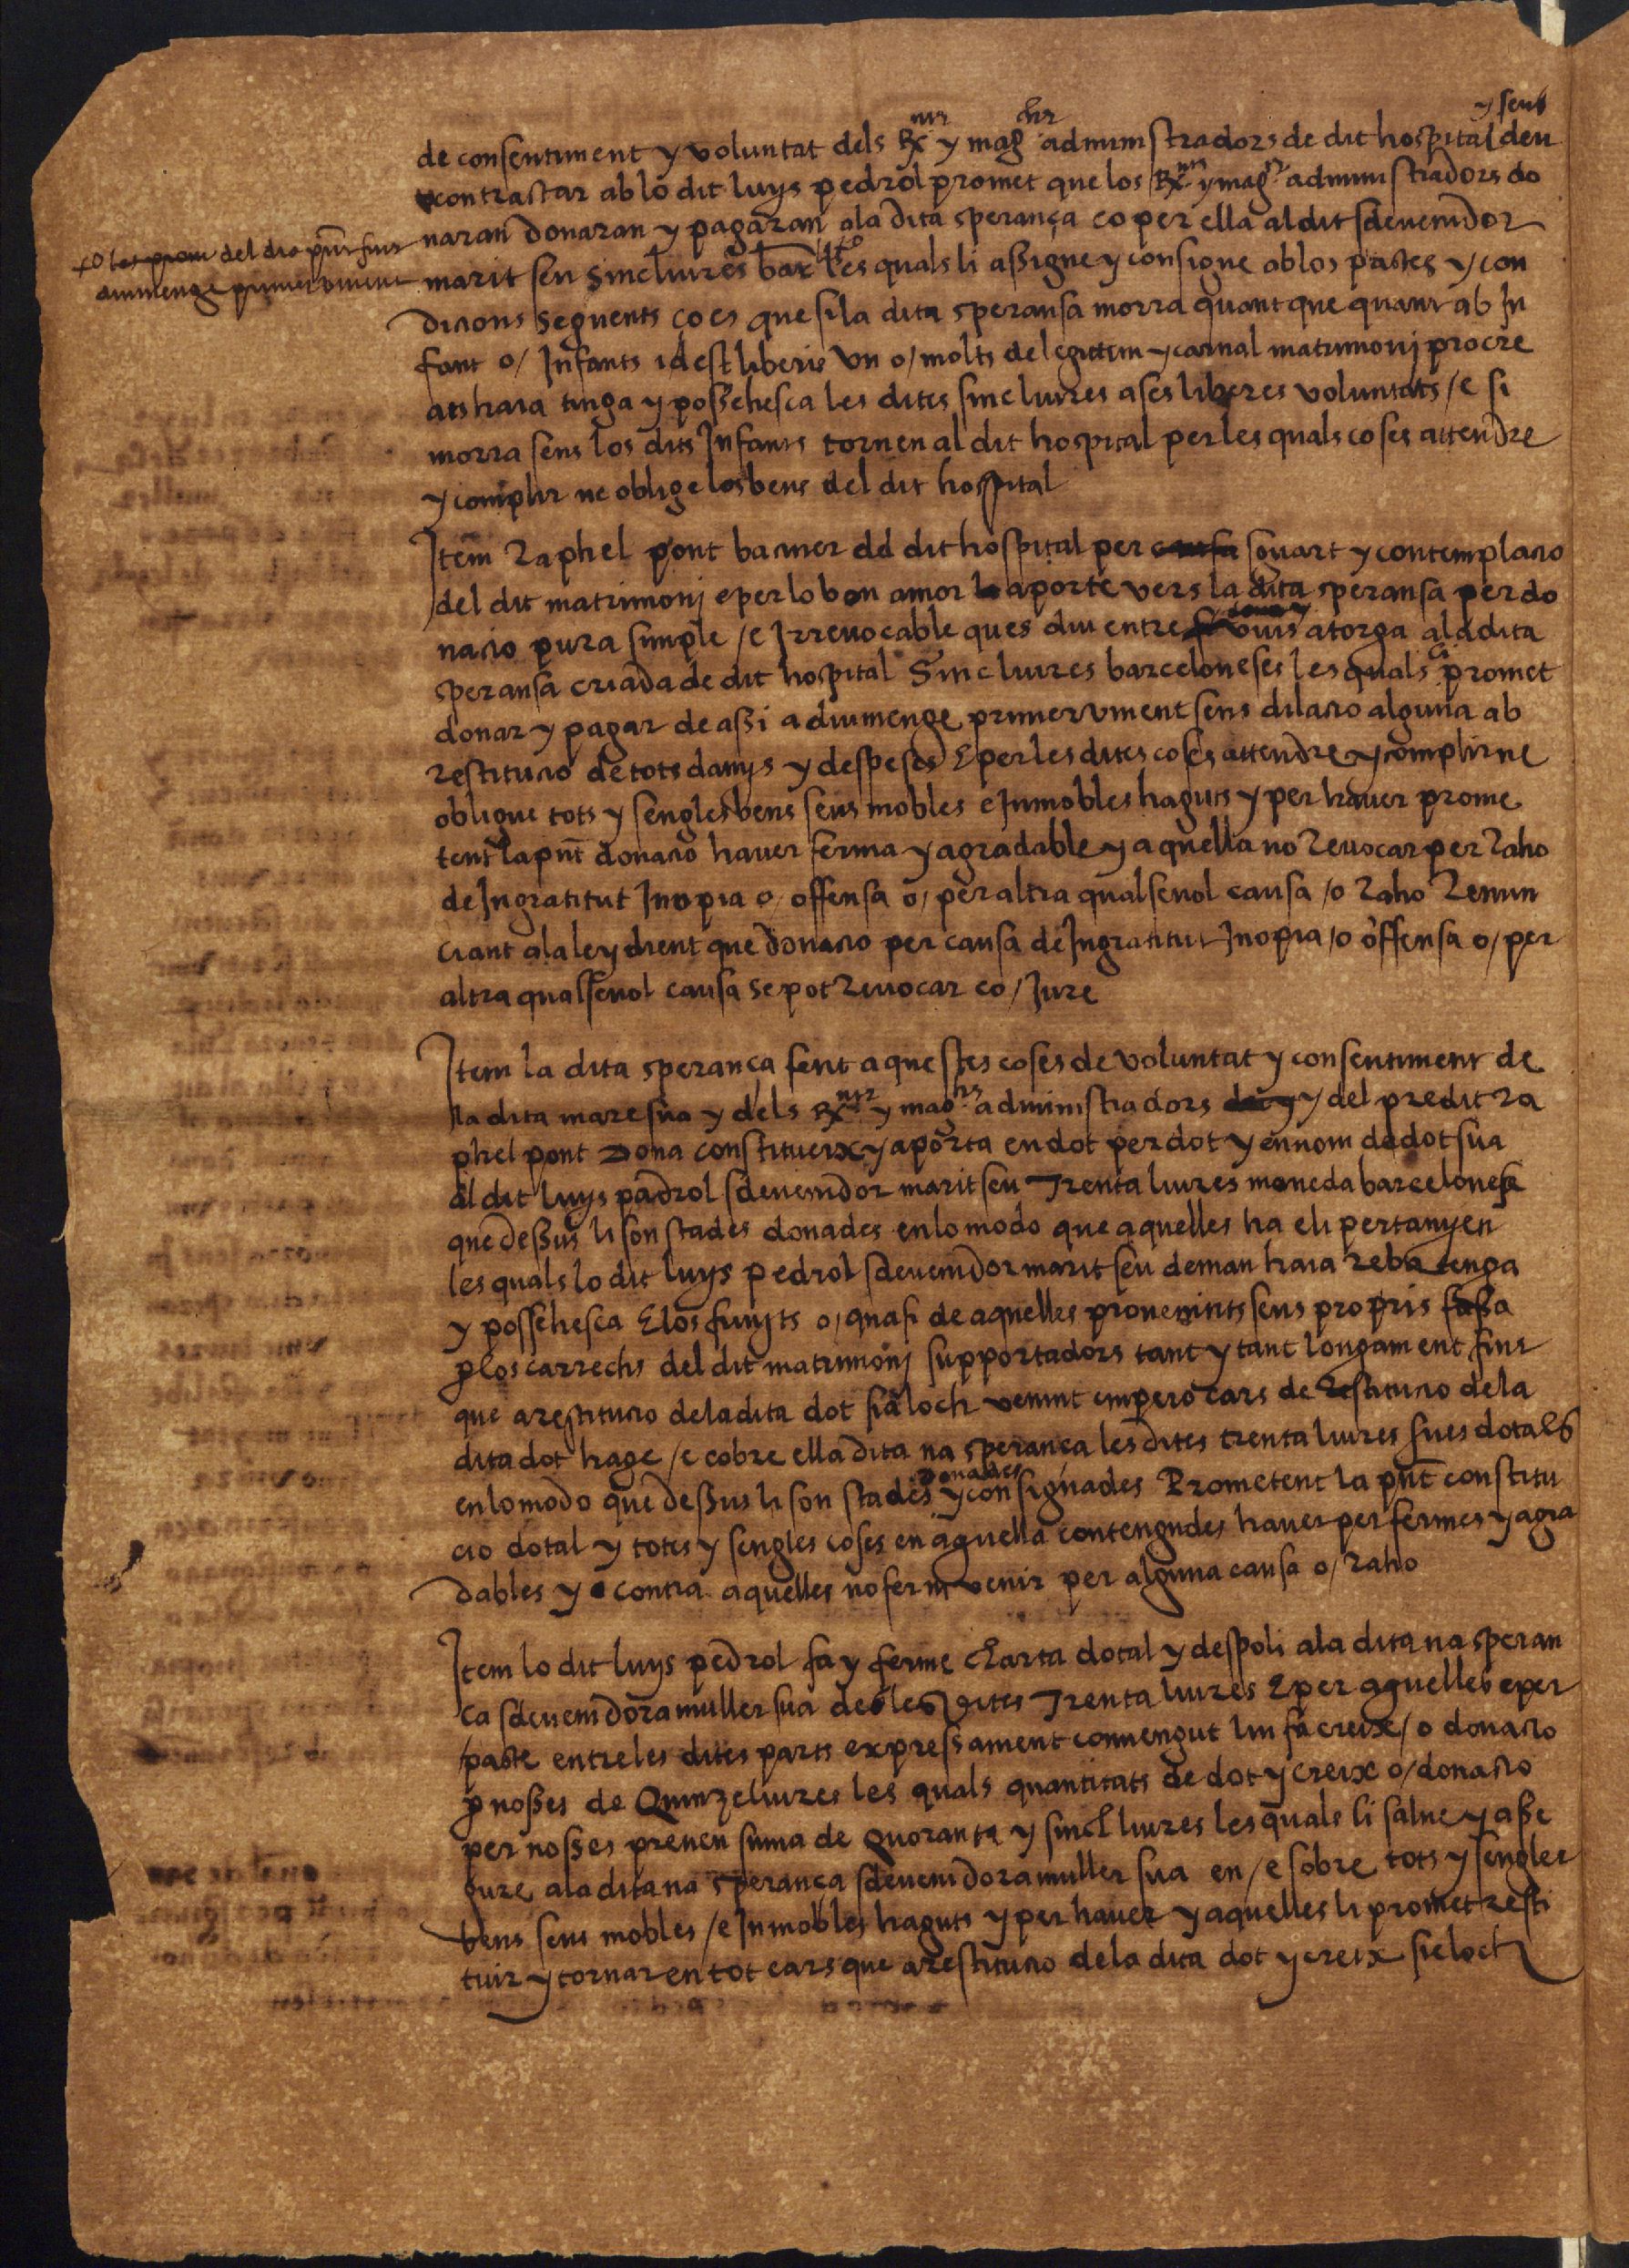 y sens
de consentiment y voluntat dels Rx nts y mag chs administradors de dit hospital deu
contrastar ab lo dit luys pedrol promet que los Rx nts y mag chs administradors do
naran donaran y pagaran ala dita sperança ço per ella al dit sdevenidor
del dia pnt fins
marit seu sinc liures bar les quals li assigne y consigne ab los pactes y con
diumenge primervinent
dicions seguents ço es que si la dita speransa morra quant que quant ab In
fant o/ Infants id est liberis un o/ molts de legittim y carnal matrimonj procre
ats haia tinga y possehesca les dites sinc liures a ses liberes voluntats /e si
morra sens los dits Infants tornen al dit hospital per les quals coses attendre
y complir ne oblige los bens del dit hospital
Item Raphel pont baciner del dit hospital per causa sguart y contemplacio
del dit matrimonj e per lo bon amor aporte vers la dita speransa per do
nacio pura simple /e Irrevocable ques diu entre vius atorga ala dita
speransa criada de dit hospital Sinc liures barceloneses les quals promet
donar y pagar de assi a diumenge primervinent sens dilacio alguna ab
restitucio de tots danys y despeses E per les dites coses attendre y complirne
obligue tots y sengles bens seus mobles e Inmobles haguts y per haver prome
tent la pnt donacio haver ferma y agradable y aquella no revocar per raho
de Ingratitut Inopia o/ offensa o/ per altra qualsevol causa /o raho Renun
ciant ala ley dient que donacio per causa de Ingratitut Inopia /o offensa o/ per
altra qualsevol causa se pot revocar eo/ Jure
Item la dita sperança fent aquestes coses de voluntat y consentiment de
la dita mare sua y dels Rx nts y mag chs administradors y del predit ra
phel pont Dona constitueix y aporta en dot per dot y en nom de dot sua
al dit luys padrol sdevenidor marit seu Trenta liures moneda barcelonesa
que dessus li son stades donades en lo modo que aquelles ha e li pertanyen
les quals lo dit luys pedrol sdevenidor marit seu deman haia reba tenga
y possehesca E los fruyts o/ quasi de aquelles provenints seus propris fassa
p los carrechs del dit matrimonj supportadors tant y tant longament fins
que a restitucio dela dita dot sia loch venint empero cars de Restitucio dela
dita dot hage /e cobre ella dita na sperança les dites trenta liures sues dotals
donades
en lo modo que dessus li son stades y consignades Prometent la pnt constitu
cio dotal y totes y sengles coses en aquella contengudes haver per fermes y agra
dables y contra aquelles no fer ni venir per alguna causa o/ raho
Item lo dit luys pedrol fa y ferme Carta dotal y despoli ala dita na speran
ça sdevenidora muller sua de les dites Trenta liures E per aquelles e per
pacte entre les dites parts expressament convengut lin fa creix /o donacio
p nosses de Quinze liures les quals quantitats de dot y creix o/ donacio
per nosses prenen suma de Quoranta y sinch liures les quals li salve y asse
gure ala dita na sperança sdevenidora muller sua en /e sobre tots y sengles
bens seus mobles /e Inmobles haguts y per haver y aquelles li promet resti
tuir y tornar en tot cars que a restitucio dela dita dot y creix sie loch